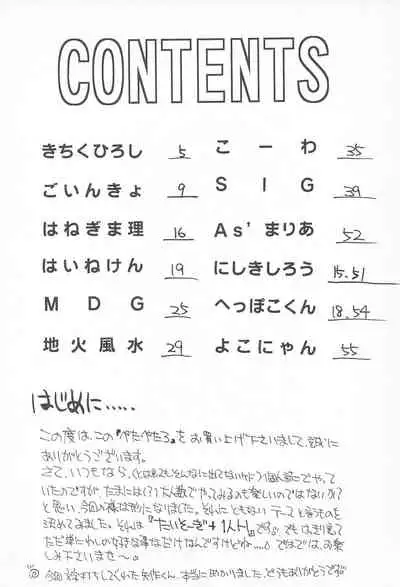 CONTENTS
きちくひろし 5
ごいんきょ 9
はねぎま理 16
はいねけん 19
MDG 25
地火風水 29
こーわ 35
SIG 39
As'まりあ 52
にしきしろう 15.51
へっぽこくん 18.54
よこにゃん 55
はじめに.....
この度は、この『ぺたぺたろ』をお買い上げ下さいまして、誠に
ありがとうございます。
さて、いつもなら、(とは言ってもそんなに出てないけど)個人誌でやって
いたのですが、たまには(?)大人数でやってみるのも楽しいのではないか?
と思い、今回の様な形になりました。それにともない テーマと言うものを
決めてみました。それは
です』。でもはっきり言て
ただ単に
の好きな事なだけなんですけどねー....。ではでは、お楽
しみ下さいませ〜。
今回
してくれた
くん、本当に助かりました。どうもありがとうです。